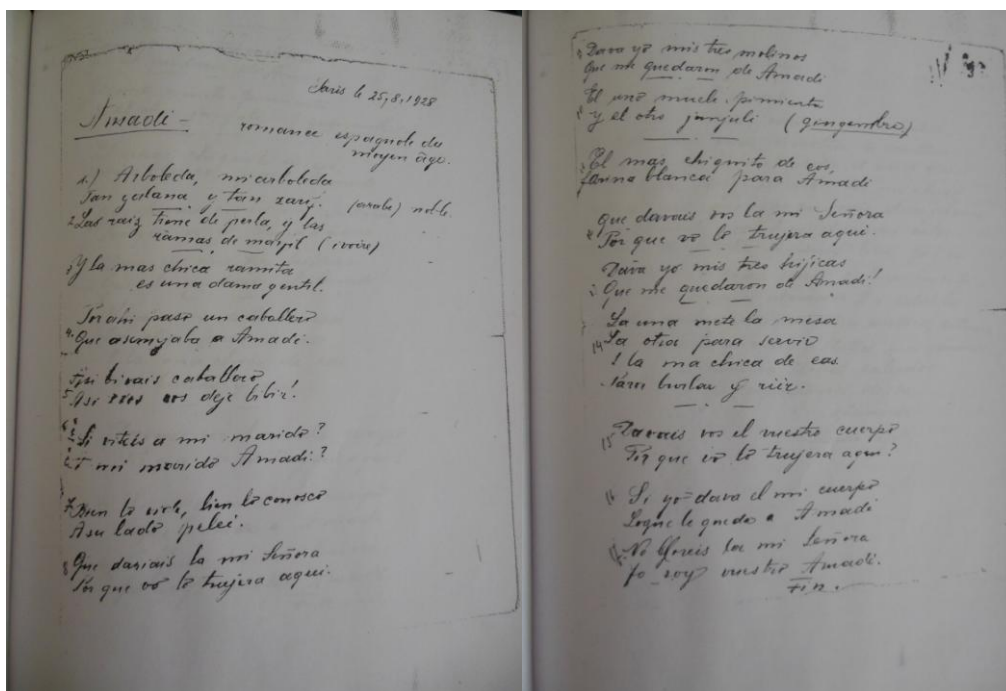 Paris le 25,8,1928
Amadi -
romance espagnole du
moyen âge.
1.) Arboleda, mi arboleda
Tan galana y tan zarif. (arabe) noble.
2. Las raiz tiene de perla, y las
ramas de marfil (ivoire)
3. Y la mas chica ramita
es una dama gentil.
Por ahi paso un caballero
4. Que asemejaba a Amadi.
bivais caballero
5. deje bibir!
6. Si viteis a mi marido?
mi marido Amadi?
7. Bien lo vide, bien lo conosco
A su lado peleí.
8. Que dariais la mi Señora
Por que vo lo trujera aqui.
9. Dava yo mis tres molinos
Que me quedaron de Amadi
El uno muele pimienta
y el otro janjuli (gingembre)
El mas chiquito de eos,
farina blanca para Amadi
que davais vos la mi Señora
Por que vo lo trujera aqui.
Dava yo mis tres hijicas
Que me quedaron de Amadi!
La una mete la mesa
14 La otra para servir
I la ma chica de eas
Para burlar y riir.
15 Davais vos el vuestro cuerpo
Por que vo lo trujera aqui?
16 Si yo dava el mi cuerpo
Loque le quedo a Amadi
17. No lloreis la mi Señora
Yo soy vuestro Amadi.
Fin.